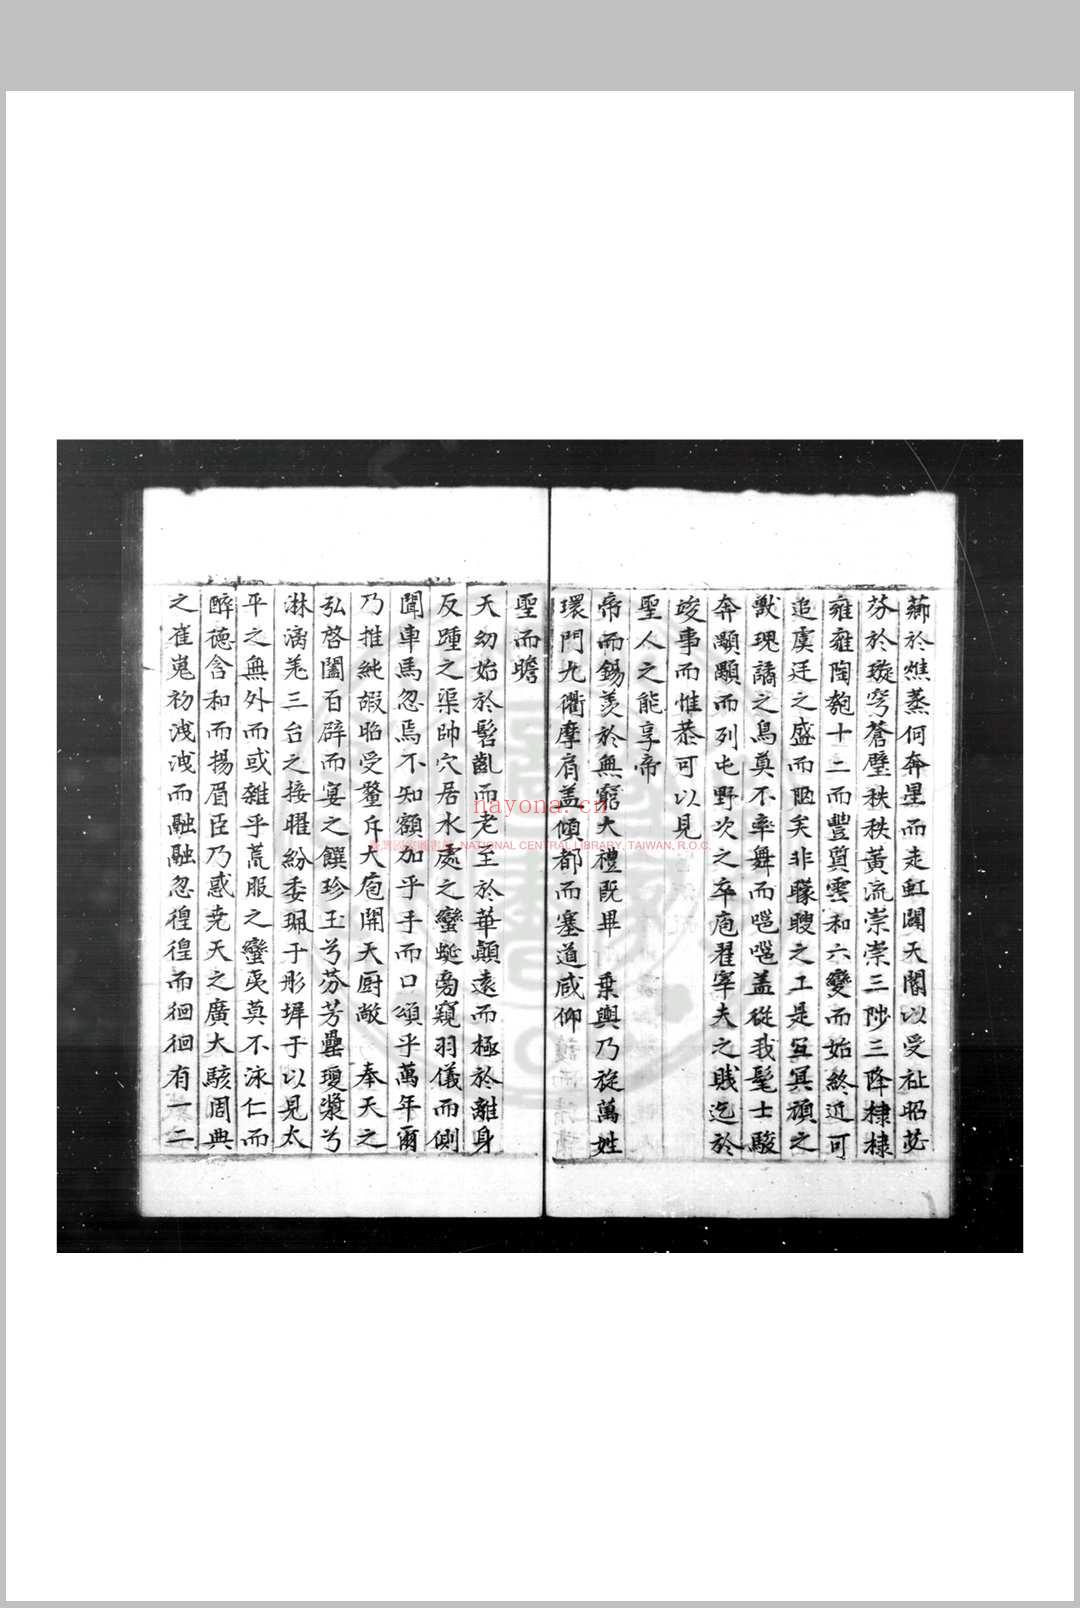 薌於燋蒸何奔星而走虹闢天閽以受祉昭苾
芬於璇穹蒼璧秩秩黃流崇崇三陟三降棣棣
雍雍陶匏十二而豐奠雲和六變而始終近可
追虞廷之盛而陋矣非矇瞍之工是宜冥頑之
獸瑰譎之鳥莫不率舞而嗈嗈盖從我髦士駿
奔顒顒而列屯野次之卒庖翟宰夫之賤迄於
竣事而惟恭可以見
聖人之能享帝
帝而錫羡於無窮大禮既畢 乗輿乃旋萬姓
環門九衢摩肩盖傾都而塞道咸仰
聖而瞻
天幼始於髫齓而老至於華顛遠而極於離身
反踵之渠帥穴居水處之蠻蜓旁窺羽儀而側
聞車馬忽焉不知額加乎手而口頌乎萬年爾
乃推純嘏昭受釐斥大庖開天厨敞 奉天之
弘啓闔百辟而宴之饌珍玉兮芬芳罍瓊漿兮
淋漓羌三台之接曜紛委珮于彤墀于以見太
平之無外而或雜乎荒服之蠻夷莫不泳仁而
醉德含和而揚眉臣乃惑尭天之廣大駭周典
之崔嵬初洩洩而融融忽徨徨而徊徊有一二
nayona.cn
NATIONAL CENTRAL LIBRARY, TAIWAN, R.O.C.